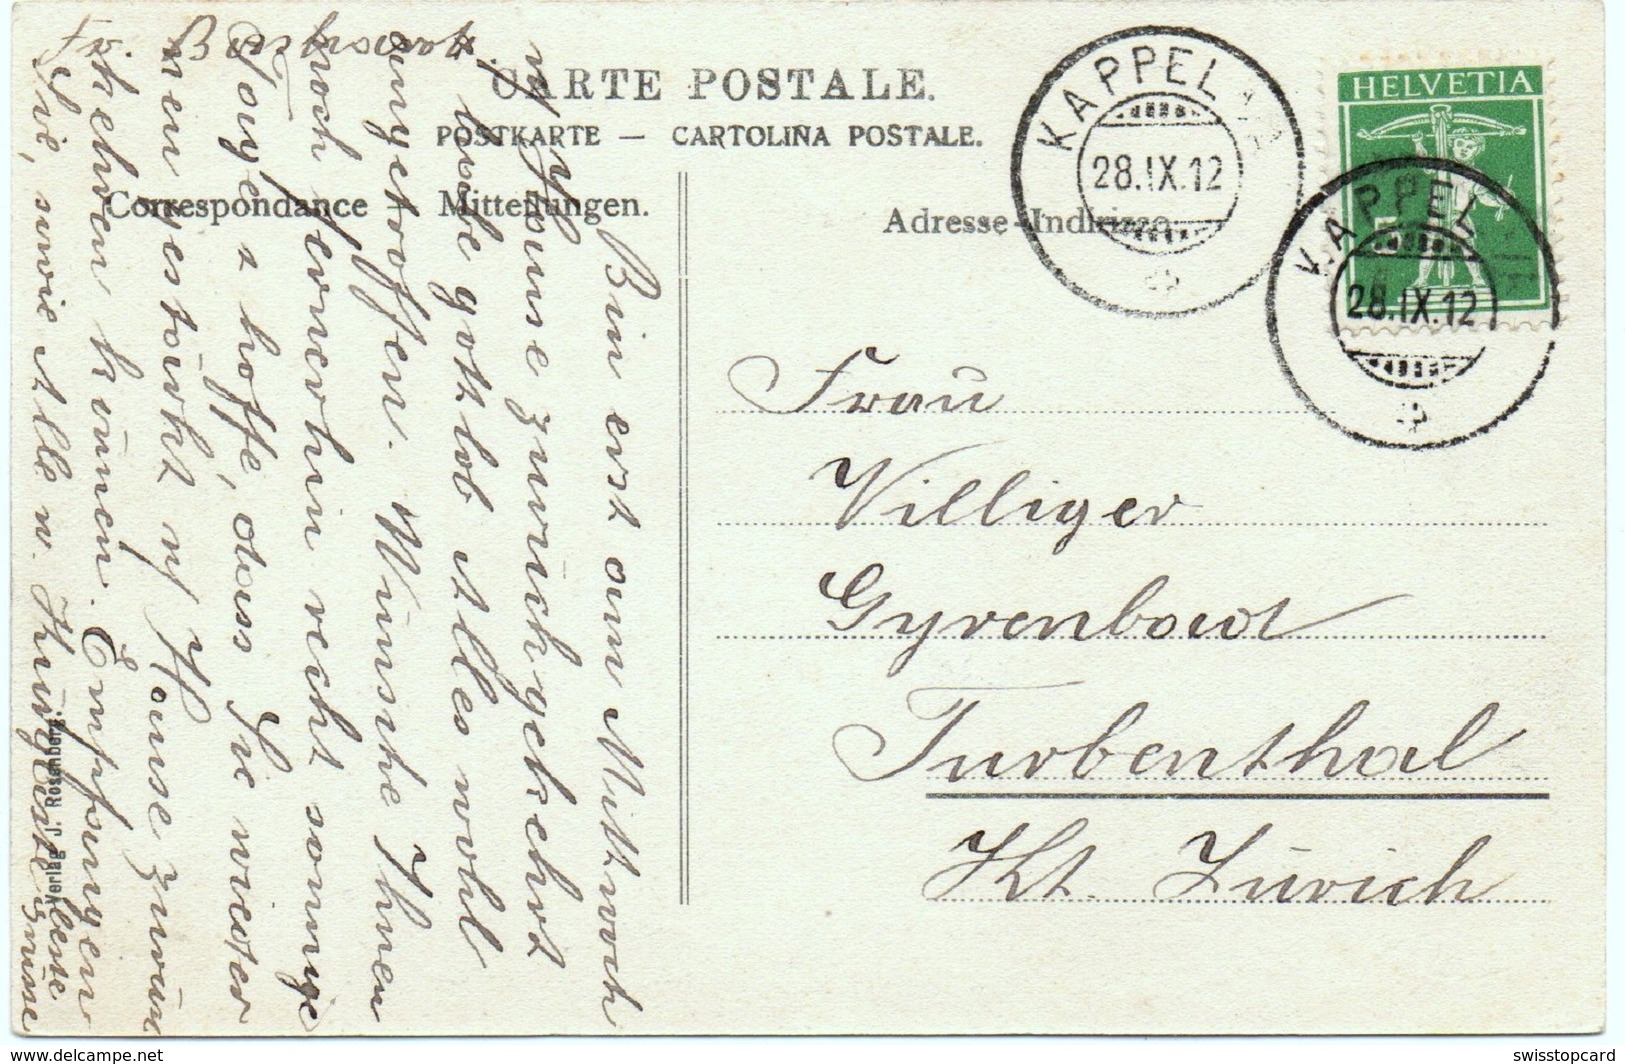 CARTE POSTALE.
POSTKARTE — CARTOLINA POSTALE.
Correspondance Mitteilungen.
Adresse-Indirizzo
KAPPEL
28.IX.12
KAPPEL
28.IX.12
HELVETIA
5
Frau
Villiger
Gyrenbad
Turbenthal
Kt. Zürich
Bin erst am Mittwoch
n/ Hause zurückgekehrt
& habe gottlob Alles wohl
angetroffen. Wünsche Ihnen
noch fernerhin recht sonnige
Tage & hoffe, dass Sie wieder
gestärkt n/ Hause zurück
kehren können. Empfangen
Sie, sowie Alle w. Kurgäste beste
Grüsse
Verlag J. Rosenberg
swisstopcard